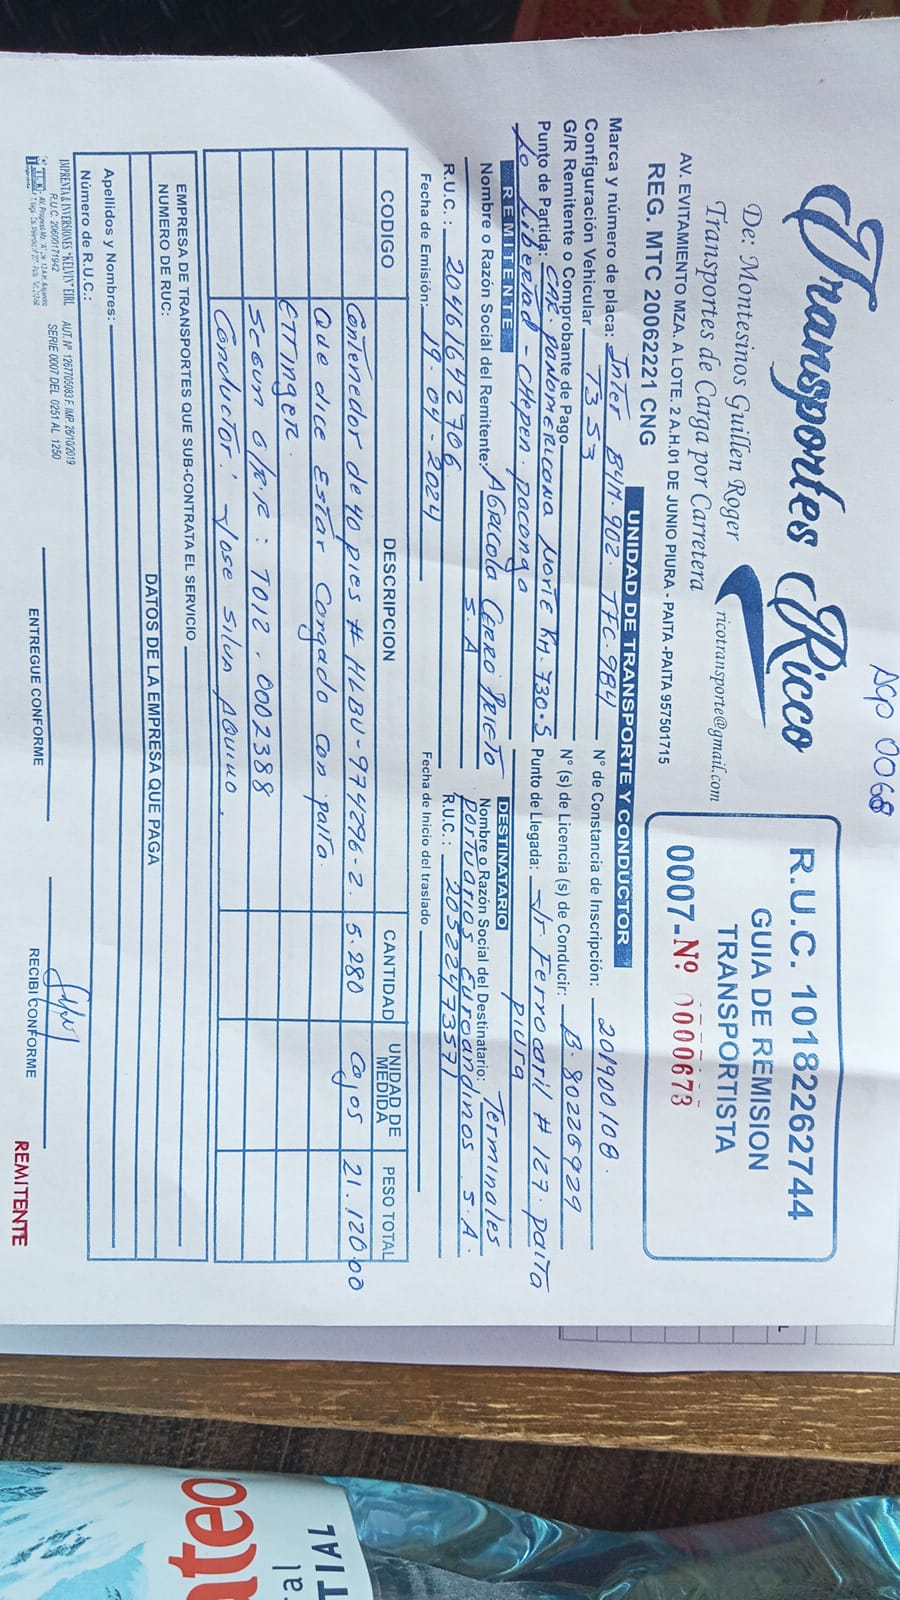 Acp 0068
Transportes Ricco
De: Montesinos Guillen Roger
Transportes de Carga por Carretera
ricotransporte@gmail.com
AV. EVITAMIENTO MZA. A LOTE. 2 A.H.01 DE JUNIO PIURA - PAITA -PAITA 957501715
REG. MTC 20062221 CNG
R.U.C. 10182262744
GUIA DE REMISION
TRANSPORTISTA
0007-Nº 0000673
UNIDAD DE TRANSPORTE Y CONDUCTOR
Marca y número de placa: Inter B4M-902. TFC-984
N° de Constancia de Inscripción: 201900108.
Configuración Vehicular T3 S3
N° (s) de Licencia (s) de Conducir: B-80226929
G/R Remitente o Comprobante de Pago
Punto de Partida: CAR. panamericana Norte Km. 730.5
La Libertad - CHepen. pacanga
Punto de Llegada: Jr. Ferrocaril # 127. paita
piura
REMITENTE
Nombre o Razón Social del Remitente: Agricola Cerro Prieto
S.A
R.U.C.: 20461642706
DESTINATARIO
Nombre o Razón Social del Destinatario: Terminales
portuarios Euroandinos S.A.
R.U.C.: 20522473571
Fecha de Emisión: 19-04-2024
Fecha de Inicio del traslado
CODIGO DESCRIPCION CANTIDAD UNIDAD DE MEDIDA PESO TOTAL
Contenedor de 40 pies # HLBU-974296-2. 5.280 Cajas 21.120.00
Que dice Estar Cargado con palta.
ETTINGER.
Segun G/R/R: T012.0002388
Conductor: Jose Silva Aquino.
EMPRESA DE TRANSPORTES QUE SUB-CONTRATA EL SERVICIO
NUMERO DE RUC:
DATOS DE LA EMPRESA QUE PAGA
Apellidos y Nombres:
Número de R.U.C.:
IMPRENTA & INVERSIONES "KELVIN" EIRL
R.U.C. 20600171942
AUT. Nº 1267705083 F. IMP. 26/10/2019
SERIE 0007 DEL 0251 AL 1250
ENTREGUE CONFORME
RECIBI CONFORME
REMITENTE
ateo
al
TIAL